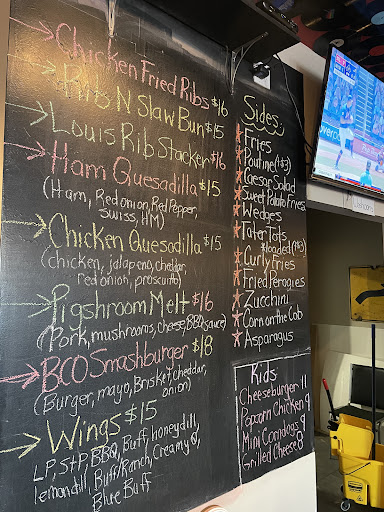 Chicken Fried Ribs $16
Rib N Slaw Bun $15
Louis Rib Stacker $16
Ham Quesadilla $15
(Ham, Red onion, Red Pepper,
Swiss, HM)
Chicken Quesadilla $15
(chicken, jalapeno, cheddar,
red onion, prosciutto)
Pigshroom Melt $16
(Pork, mushrooms, cheese, BBQ sauce)
BCO Smashburger $18
(Burger, mayo, Brisket, cheddar,
onion)
Wings $15
LP, S+P, BBQ, Buff, honeydill,
lemondill, Buff/Ranch, Creamy Q,
Blue Buff
Sides:
Fries
Poutine (+$3)
Caesar Salad
Sweet Potato Fries
Wedges
Tater Tots
*loaded (+$3)
Curly Fries
Fried Perogies
Zucchini
Corn on the Cob
Asparagus
Kids
Cheeseburger 11
Popcorn Chicken 9
Mini Corndogs 9
Grilled Cheese 8